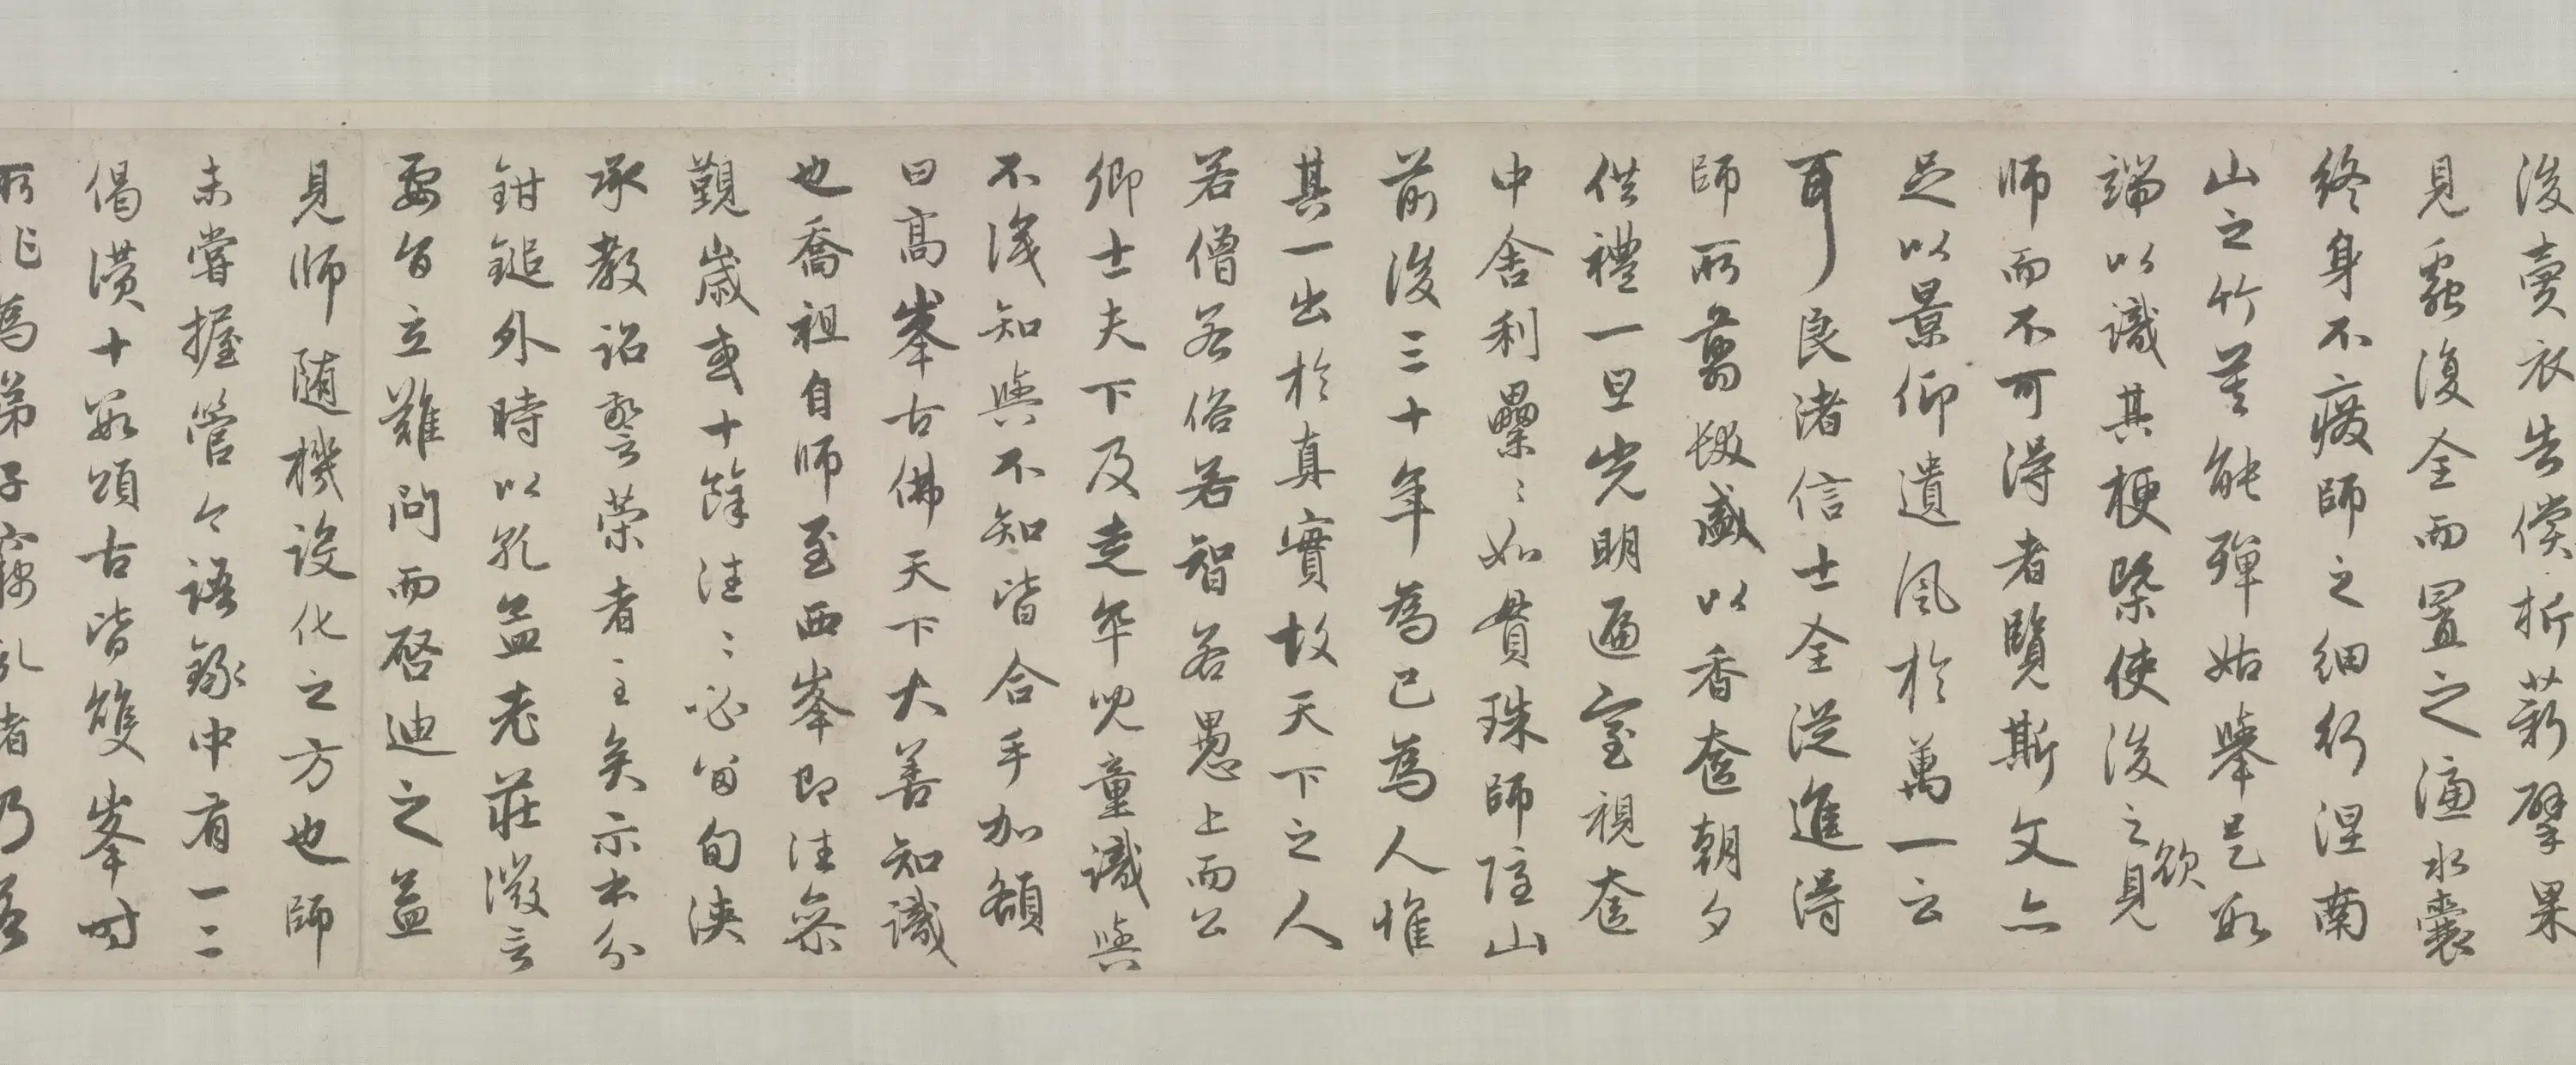 後賣衣告償析薪擘果
見蟲復全而置之濾水囊
終身不廢師之細行涅南
山之竹莫能殫姑舉是數
端以識其梗槩使後之欲見
師而不可得者覽斯文亦
足以景仰遺風於萬一云
耳良渚信士全從進得
師所翦髮盛以香奩朝夕
供禮一旦光明遍室視奩
中舍利纍纍如貫珠師住山
前後三十年為已為人惟
其一出於真實故天下之人
若僧若俗若智若愚上而公
卿士夫下及走卒兒童識與
不識知與不知皆合手加額
曰高峯古佛天下大善知識
也喬祖自師至西峯即往參
覲歲或十餘往往必留旬浹
承教詔警策者至矣示本分
鉗鎚外時以孔孟老莊微言
要旨立難問而啓迪之益
見師随機設化之方也師
未嘗握管今語錄中有一二
偈讚十數頌古皆雙峯時
所作為弟子竊記者乃若